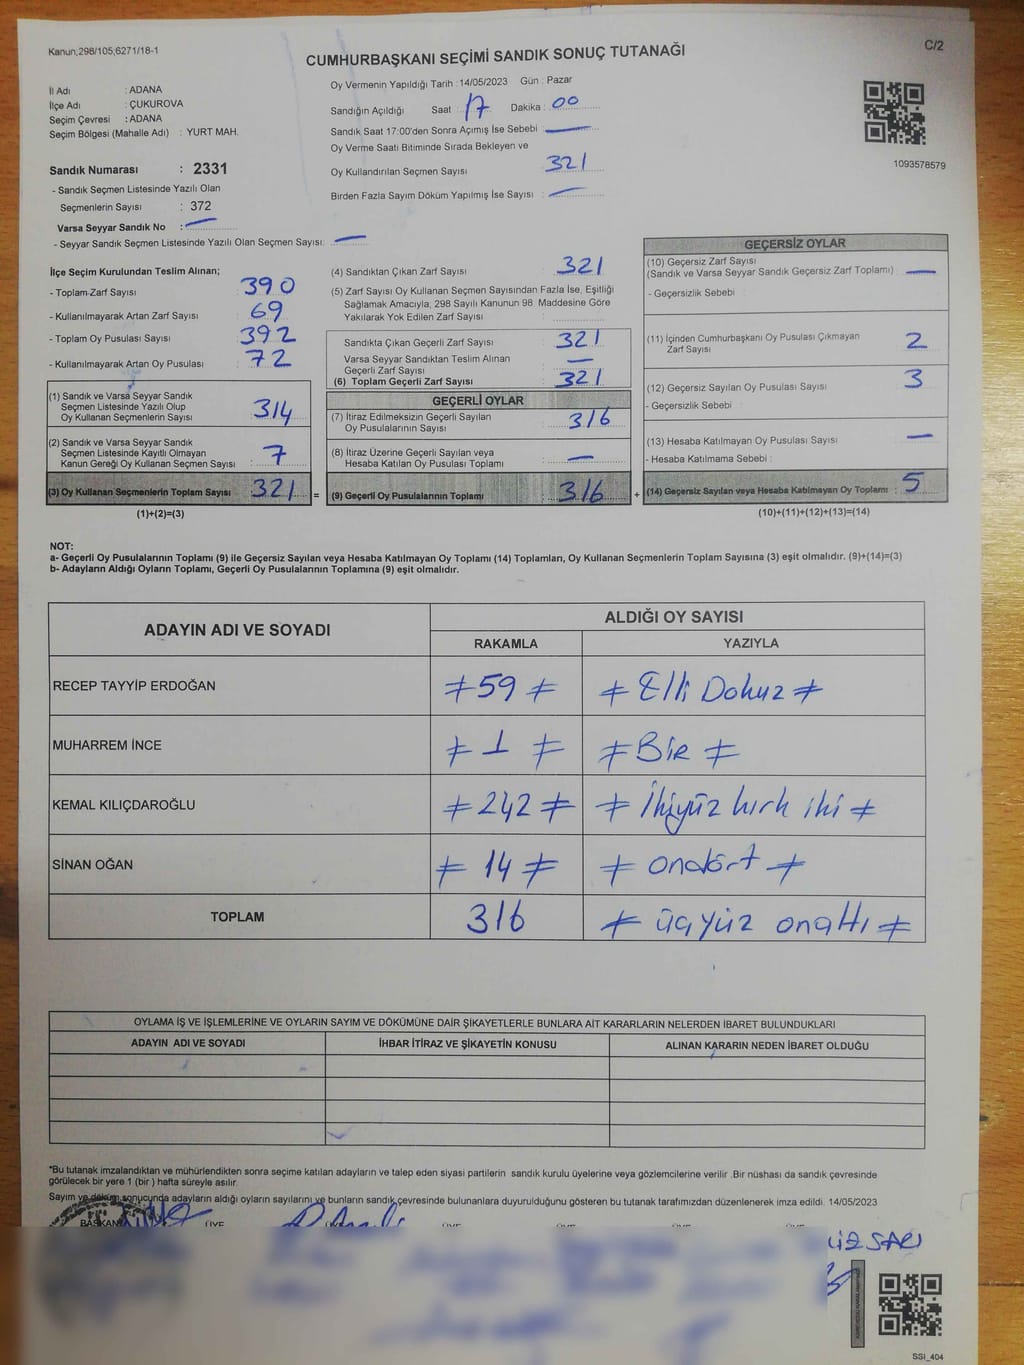 Kanun,298/105,6271/18-1
C/2
CUMHURBAŞKANI SEÇİMİ SANDIK SONUÇ TUTANAĞI
İl Adı : ADANA
İlçe Adı : ÇUKUROVA
Seçim Çevresi : ADANA
Seçim Bölgesi (Mahalle Adı) : YURT MAH.
Sandık Numarası : 2331
- Sandık Seçmen Listesinde Yazılı Olan
Seçmenlerin Sayısı : 372
Varsa Seyyar Sandık No :
- Seyyar Sandık Seçmen Listesinde Yazılı Olan Seçmen Sayısı:
Oy Vermenin Yapıldığı Tarih :14/05/2023 Gün : Pazar
Sandığın Açıldığı Saat : 17 Dakika : 00
Sandık Saat 17:00'den Sonra Açımış İse Sebebi :
Oy Verme Saati Bitiminde Sırada Bekleyen ve
Oy Kullandırılan Seçmen Sayısı 321
Birden Fazla Sayım Döküm Yapılmış İse Sayısı :
1093578579
İlçe Seçim Kurulundan Teslim Alınan;
- Toplam Zarf Sayısı 390
- Kullanılmayarak Artan Zarf Sayısı 69
- Toplam Oy Pusulası Sayısı 392
- Kullanılmayarak Artan Oy Pusulası 72
(1) Sandık ve Varsa Seyyar Sandık
Seçmen Listesinde Yazılı Olup
Oy Kullanan Seçmenlerin Sayısı 314
(2) Sandık ve Varsa Seyyar Sandık
Seçmen Listesinde Kayıtlı Olmayan
Kanun Gereği Oy Kullanan Seçmen Sayısı : 7
(3) Oy Kullanan Seçmenlerin Toplam Sayısı 321 =
(1)+(2)=(3)
(4) Sandıktan Çıkan Zarf Sayısı 321
(5) Zarf Sayısı Oy Kullanan Seçmen Sayısından Fazla İse, Eşitliği
Sağlamak Amacıyla; 298 Sayılı Kanunun 98. Maddesine Göre
Yakılarak Yok Edilen Zarf Sayısı
Sandıkta Çıkan Geçerli Zarf Sayısı 321
Varsa Seyyar Sandıktan Teslim Alınan
Geçerli Zarf Sayısı
(6) Toplam Geçerli Zarf Sayısı 321
GEÇERLİ OYLAR
(7) İtiraz Edilmeksizin Geçerli Sayılan
Oy Pusulalarının Sayısı 316
(8) İtiraz Üzerine Geçerli Sayılan veya
Hesaba Katılan Oy Pusulası Toplamı
(9) Geçerli Oy Pusulalarının Toplamı 316 +
GEÇERSİZ OYLAR
(10) Geçersiz Zarf Sayısı
(Sandık ve Varsa Seyyar Sandık Geçersiz Zarf Toplamı) :
- Geçersizlik Sebebi :
(11) İçinden Cumhurbaşkanı Oy Pusulası Çıkmayan
Zarf Sayısı 2
(12) Geçersiz Sayılan Oy Pusulası Sayısı : 3
- Geçersizlik Sebebi :
(13) Hesaba Katılmayan Oy Pusulası Sayısı :
- Hesaba Katılmama Sebebi :
(14) Geçersiz Sayılan veya Hesaba Katılmayan Oy Toplamı : 5
(10)+(11)+(12)+(13)=(14)
NOT:
a- Geçerli Oy Pusulalarının Toplamı (9) ile Geçersiz Sayılan veya Hesaba Katılmayan Oy Toplamı (14) Toplamları, Oy Kullanan Seçmenlerin Toplam Sayısına (3) eşit olmalıdır. (9)+(14)=(3)
b- Adayların Aldığı Oyların Toplamı, Geçerli Oy Pusulalarının Toplamına (9) eşit olmalıdır.
ADAYIN ADI VE SOYADI
ALDIĞI OY SAYISI
RAKAMLA YAZIYLA
RECEP TAYYİP ERDOĞAN ≠59≠ ≠ Elli Dokuz ≠
MUHARREM İNCE ≠ 1 ≠ ≠ BİR ≠
KEMAL KILIÇDAROĞLU ≠242≠ ≠ İkiyüz kırk iki ≠
SİNAN OĞAN ≠ 14 ≠ ≠ ondört ≠
TOPLAM 316 ≠ üçyüz onaltı ≠
OYLAMA İŞ VE İŞLEMLERİNE VE OYLARIN SAYIM VE DÖKÜMÜNE DAİR ŞİKAYETLERLE BUNLARA AİT KARARLARIN NELERDEN İBARET BULUNDUKLARI
ADAYIN ADI VE SOYADI İHBAR İTİRAZ VE ŞİKAYETİN KONUSU ALINAN KARARIN NEDEN İBARET OLDUĞU
*Bu tutanak imzalandıktan ve mühürlendikten sonra seçime katılan adayların ve talep eden siyasi partilerin sandık kurulu üyelerine veya gözlemcilerine verilir .Bir nüshası da sandık çevresinde
görülecek bir yere 1 (bir ) hafta süreyle asılır.
Sayım ve döküm sonucunda adayların aldığı oyların sayılarını ve bunların sandık çevresinde bulunanlara duyurulduğunu gösteren bu tutanak tarafımızdan düzenlenerek imza edildi. 14/05/2023
BAŞKAN ÜYE ÜYE ÜYE ÜYE
SARI
SSİ_404